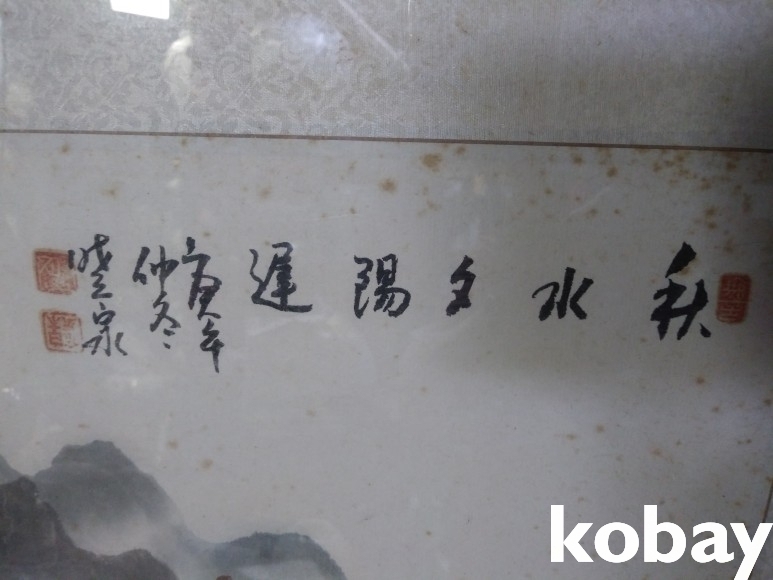 秋水夕陽遲
庚午年
仲冬
曉泉
kobay